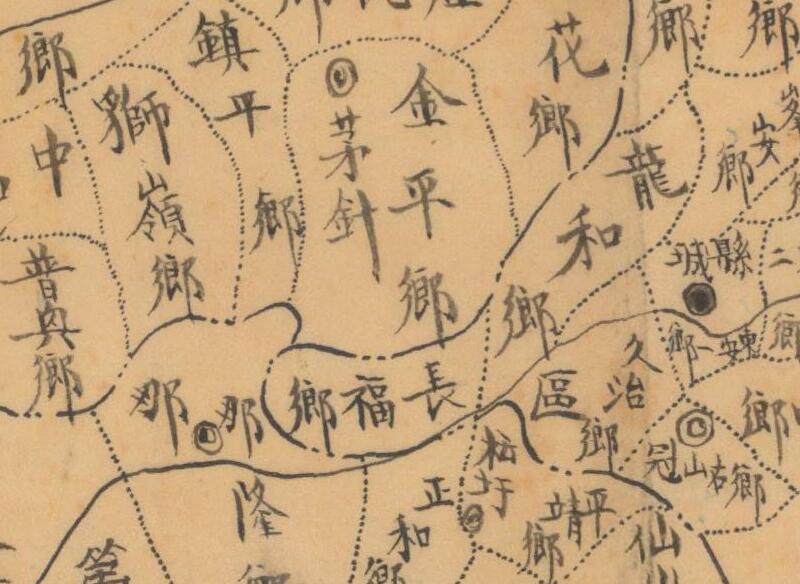 鄉
鎮平鄉
花鄉
鄉
鄉
獅嶺鄉
中
茅針
金平鄉
龍和鄉
安鄉
縣城
二
普興鄉
那那
長福鄉
區
久治鄉
東安一鄉
鄉
鄉
冠山右鄉
松圩
平靖鄉
正和鄉
隆
仙
第